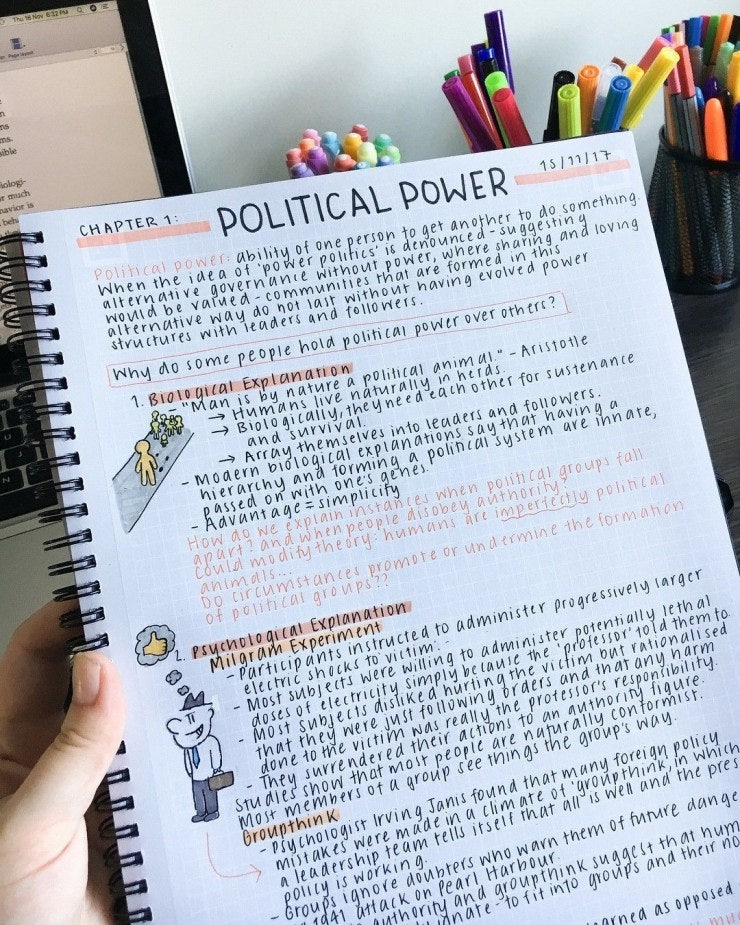 Thu 16 Nov 6:32 PM
CHAPTER 1:
POLITICAL POWER
15/11/17
Political power: ability of one person to get another to do something.
When the idea of 'power politics' is denounced - suggesting
alternative governance without power, where sharing and loving
would be valued - communities that are formed in this
alternative way do not last without having evolved power
structures with leaders and followers.
Why do some people hold political power over others?
1. Biological Explanation
- "Man is by nature a political animal." - Aristotle
→ Humans live naturally in herds.
→ Biologically, they need each other for sustenance
and survival.
→ Array themselves into leaders and followers.
- Modern biological explanations say that having a
hierarchy and forming a political system are innate,
passed on with one's genes.
- Advantage = simplicity
How do we explain instances when political groups fall
apart? and when people disobey authority?
Could modify theory: humans are imperfectly political
animals...
Do circumstances promote or undermine the formation
of political groups??
2. Psychological Explanation
Milgram Experiment
- Participants instructed to administer progressively larger
electric shocks to victim.
- Most subjects were willing to administer potentially lethal
doses of electricity simply because the 'professor' told them to.
- Most subjects disliked hurting the victim but rationalised
that they were just following orders and that any harm
done to the victim was really the professor's responsibility.
- They surrendered their actions to an authority figure.
Studies show that most people are naturally conformist.
Most members of a group see things the group's way.
Groupthink
- Psychologist Irving Janis found that many foreign policy
mistakes were made in a climate of 'groupthink', in which
a leadership team tells itself that all is well and the pres
policy is working.
- Groups ignore doubters who warn them of future dange
1941 attack on Pearl Harbour.
authority and groupthink suggest that hum
innate - to fit into groups and their no
arned as opposed